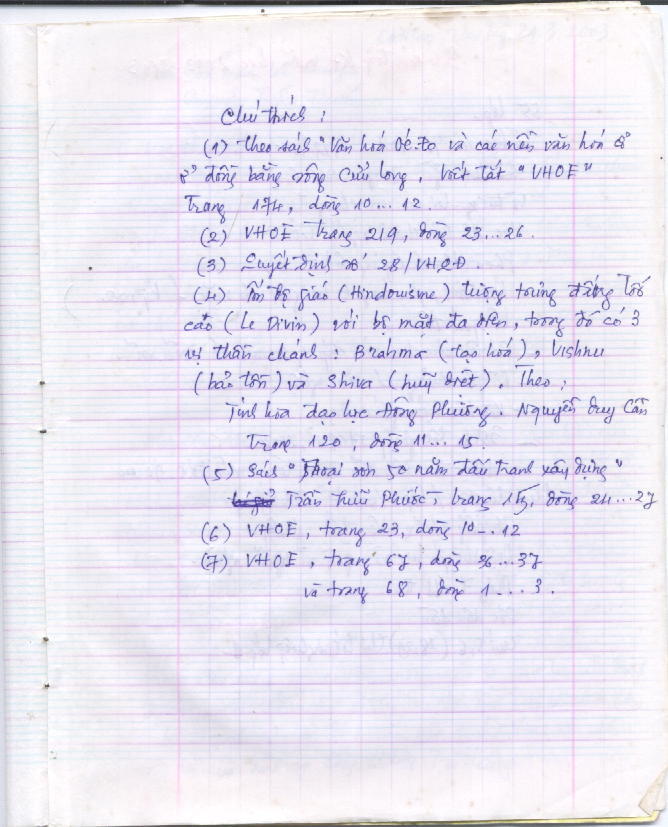 Chú thích :
(1) Theo sách "Văn hoá Óc Eo và các nền văn hoá cổ
ở đồng bằng sông Cửu Long, viết tắt "VHOE"
Trang 174, dòng 10...12.
(2) VHOE Trang 219, dòng 23...26.
(3) Quyết định số 28/VHQĐ.
(4) Ấn độ giáo (Hindouisme) tượng trưng đấng Tối
cao (Le Divin) với bộ mặt đa diện, trong đó có 3
vị thần chánh : Brahma (tạo hoá), Vishnu
(bảo tồn) và Shiva (huỷ diệt). Theo :
Tinh hoa đạo học Đông Phương. Nguyễn Duy Cần
Trang 120, dòng 11...15.
(5) Sách "Thoại Sơn 50 năm đấu tranh xây dựng"
Trần Hữu Phước, trang dòng 24...27
(6) VHOE, trang 23, dòng 10...12
(7) VHOE, trang 67, dòng 36...37
và trang 68, dòng 1...3.